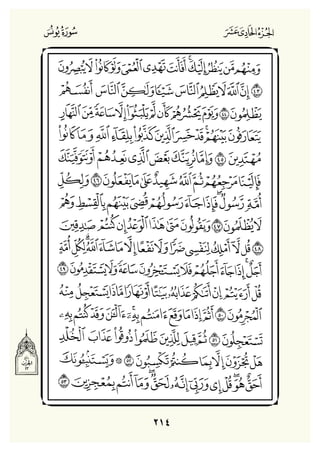 الجزء الحادي عشر
سورة يونس
ومنهم من ينظر إليك أفأنت تهدي العمي ولو كانوا لا يبصرون
٤٣ إن الله لا يظلم الناس شيئا ولكن الناس أنفسهم
يظلمون ٤٤ ويوم يحشرهم كأن لم يلبثوا إلا ساعة من النهار
يتعارفون بينهم قد خسر الذين كذبوا بلقاء الله وما كانوا
مهتدين ٤٥ وإما نرينك بعض الذي نعدهم أو نتوفينك
فإلينا مرجعهم ثم الله شهيد على ما يفعلون ٤٦ ولكل
أمة رسول فإذا جاء رسولهم قضي بينهم بالقسط وهم
لا يظلمون ٤٧ ويقولون متى هذا الوعد إن كنتم صادقين
٤٨ قل لا أملك لنفسي ضرا ولا نفعا إلا ما شاء الله لكل أمة
أجل إذا جاء أجلهم فلا يستـخرون ساعة ولا يستقدمون ٤٩
قل أرءيتم إن أتىكم عذابه بياتا أو نهارا ماذا يستعجل منه
المجرمون ٥٠ أثم إذا ما وقع ءامنتم به ءالـن وقد كنتم به
تستعجلون ٥١ ثم قيل للذين ظلموا ذوقوا عذاب الخلد
هل تجزون إلا بما كنتم تكسبون ٥٢ ويستنبـونك
أحق هو قل إي وربي إنه لحق وما أنتم بمعجزين ٥٣
٢١٤